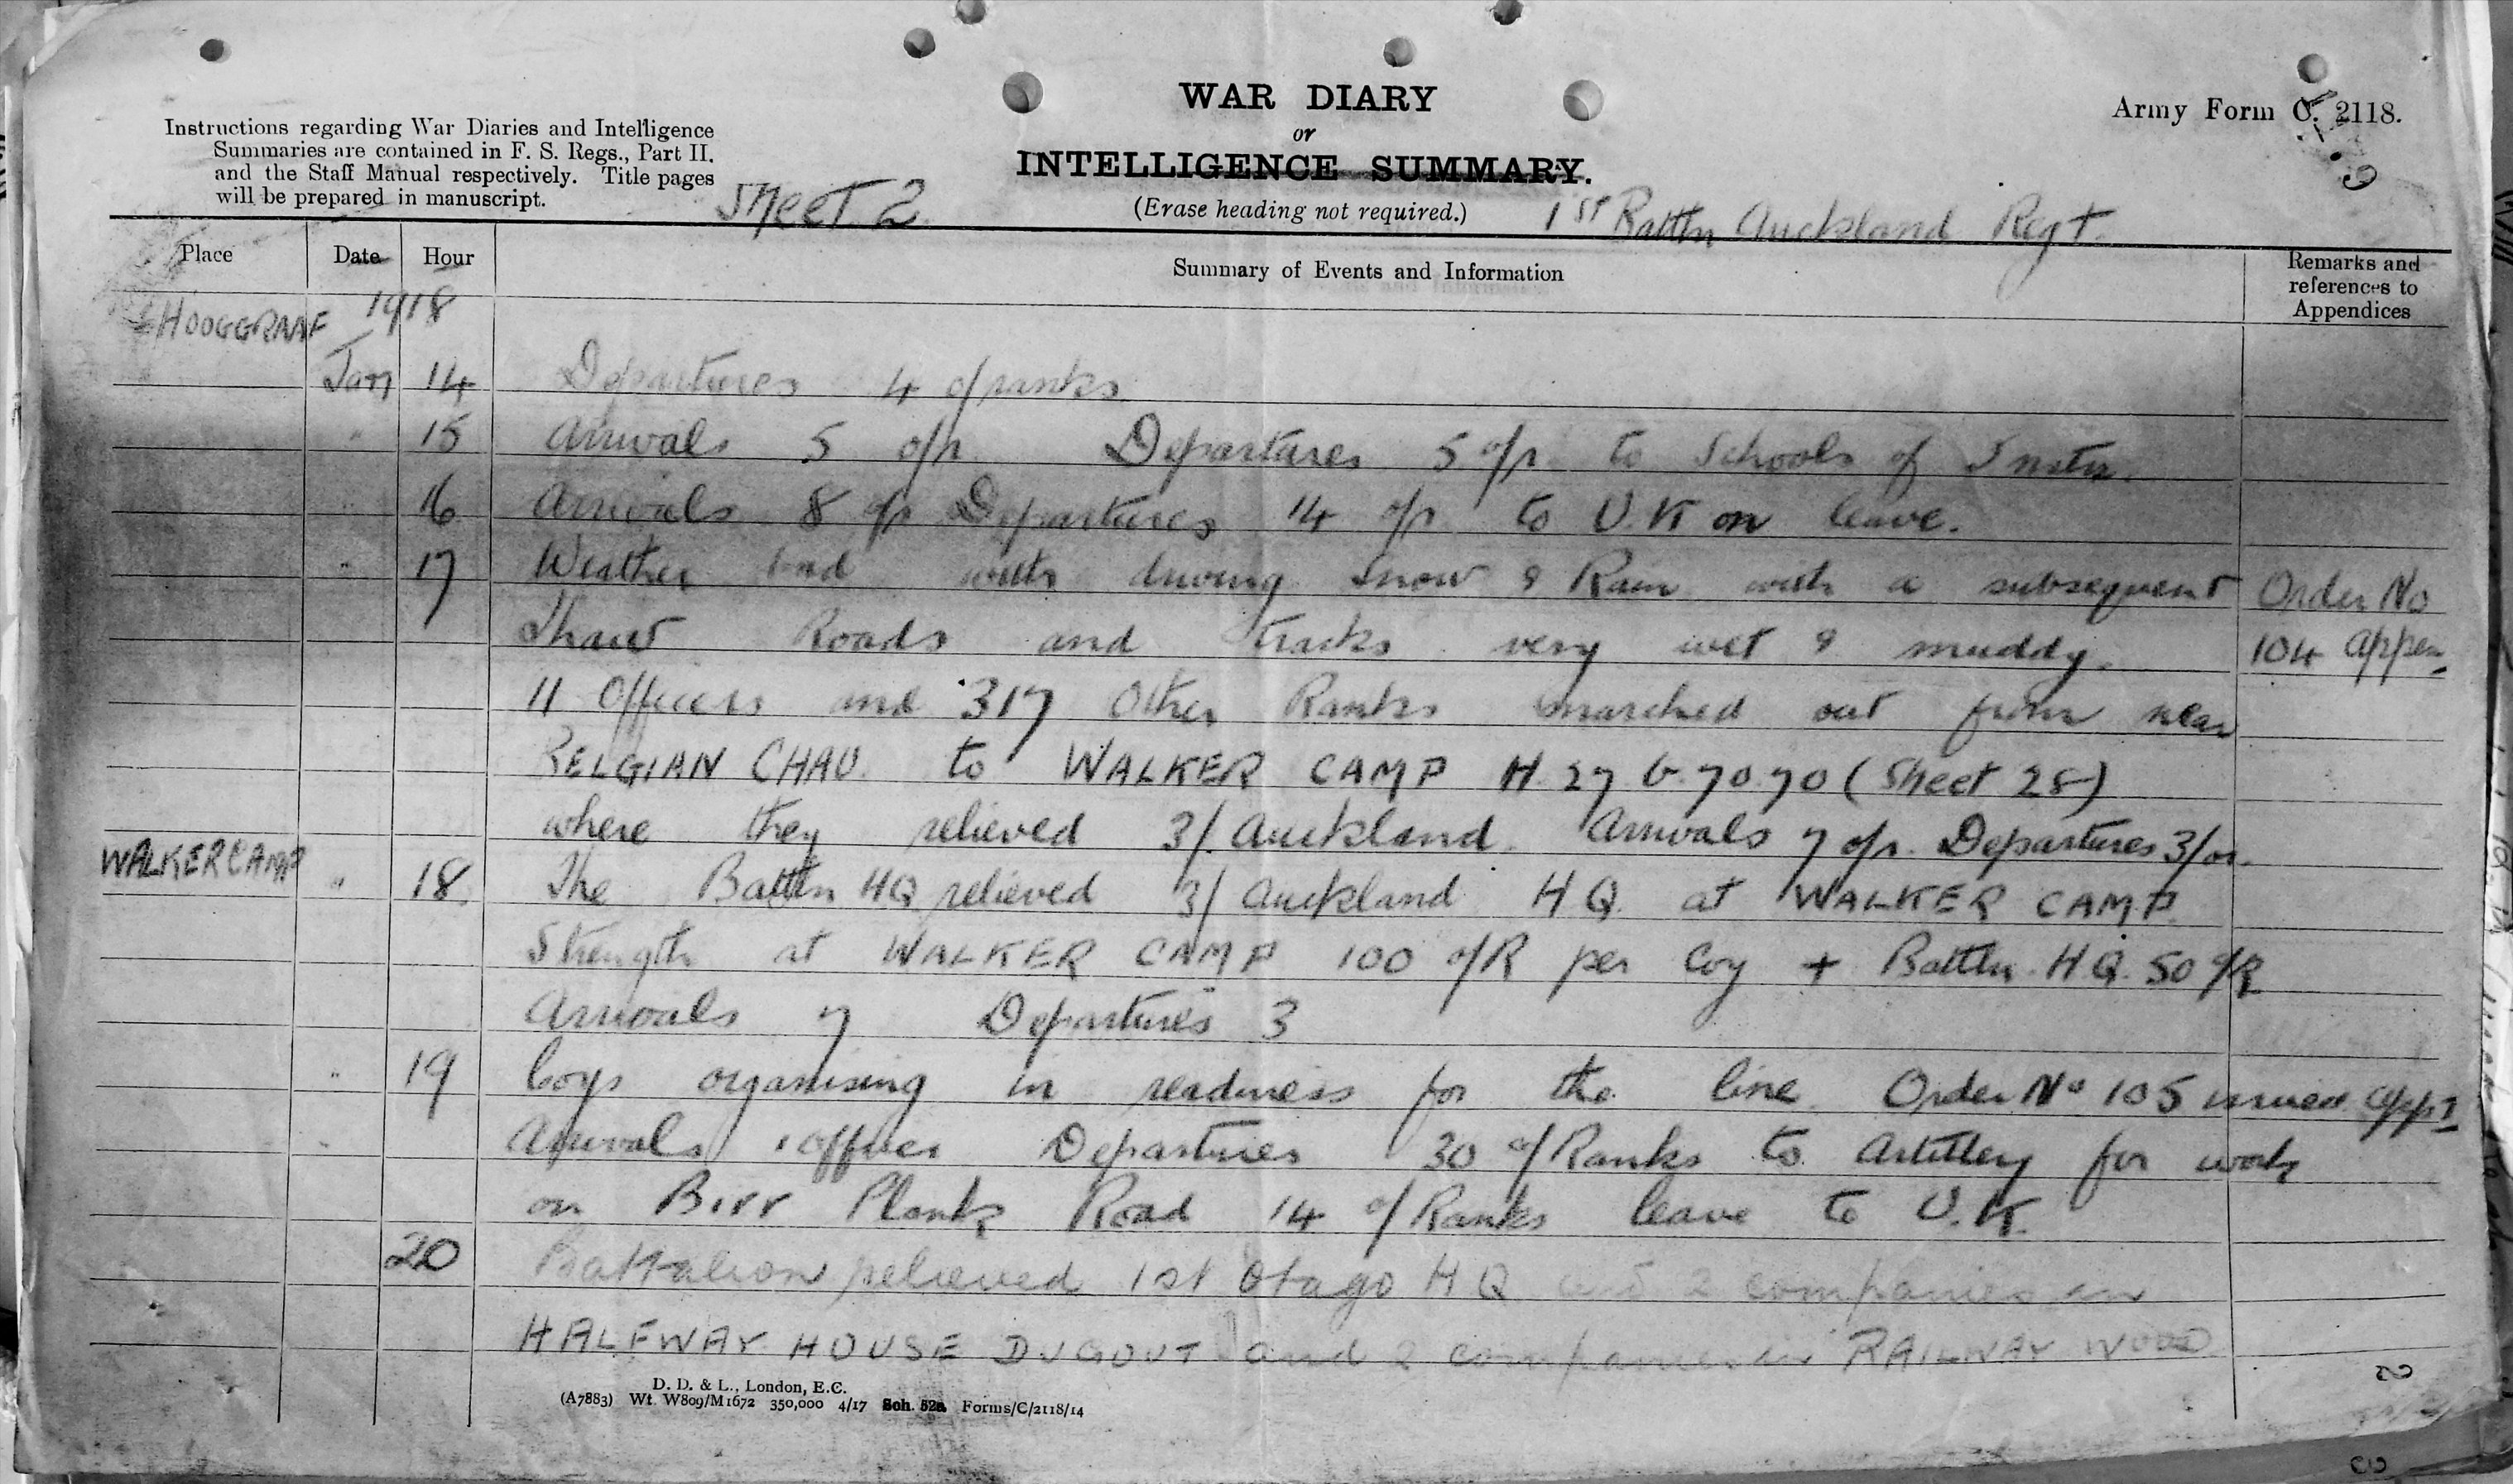 WAR DIARY
or
INTELLIGENCE SUMMARY.
(Erase heading not required.)
Army Form C. 2118.
Instructions regarding War Diaries and Intelligence
Summaries are contained in F. S. Regs., Part II.
and the Staff Manual respectively. Title pages
will be prepared in manuscript.
Sheet 2
1st Battn Auckland Regt.
Place Date Hour Summary of Events and Information Remarks and references to Appendices
HOOGGRAAF 1918
Jan 14 Departures 4 o/ranks
" 15 Arrivals 5 o/r. Departures 5 o/r. to Schools of Instn.
" 16 Arrivals 8 o/r Departures 14 o/r to U.K on leave.
" 17 Weather bad with driving snow & Rain with a subsequent Order No
Thaw Roads and tracks very wet & muddy. 104 appen
11 Officers and 317 Other Ranks marched out from near
BELGIAN CHAU. to WALKER CAMP H.27.b.70.70 (Sheet 28)
where they relieved 3/Auckland. Arrivals 7 o/r. Departures 3/or.
WALKER CAMP " 18. The Battn HQ relieved 3/Auckland HQ. at WALKER CAMP
Strength at WALKER CAMP 100 o/R per Coy + Battn HQ. 50 o/R
Arrivals 7 Departures 3
" 19 Coys organising in readiness for the line. Order No 105 issued app I
" Arrivals 1 officer Departures 30 o/Ranks to Artillery for work
on Birr Plank Road 14 o/Ranks leave to U.K.
20 Battalion relieved 1st Otago HQ and 2 companies in
HALFWAY HOUSE DUGOUT and 2 companies in RAILWAY WOOD
2
D. D. & L., London, E.C.
(A7883) Wt. W809/M1672 350,000 4/17 Sch. 52a Forms/C/2118/14